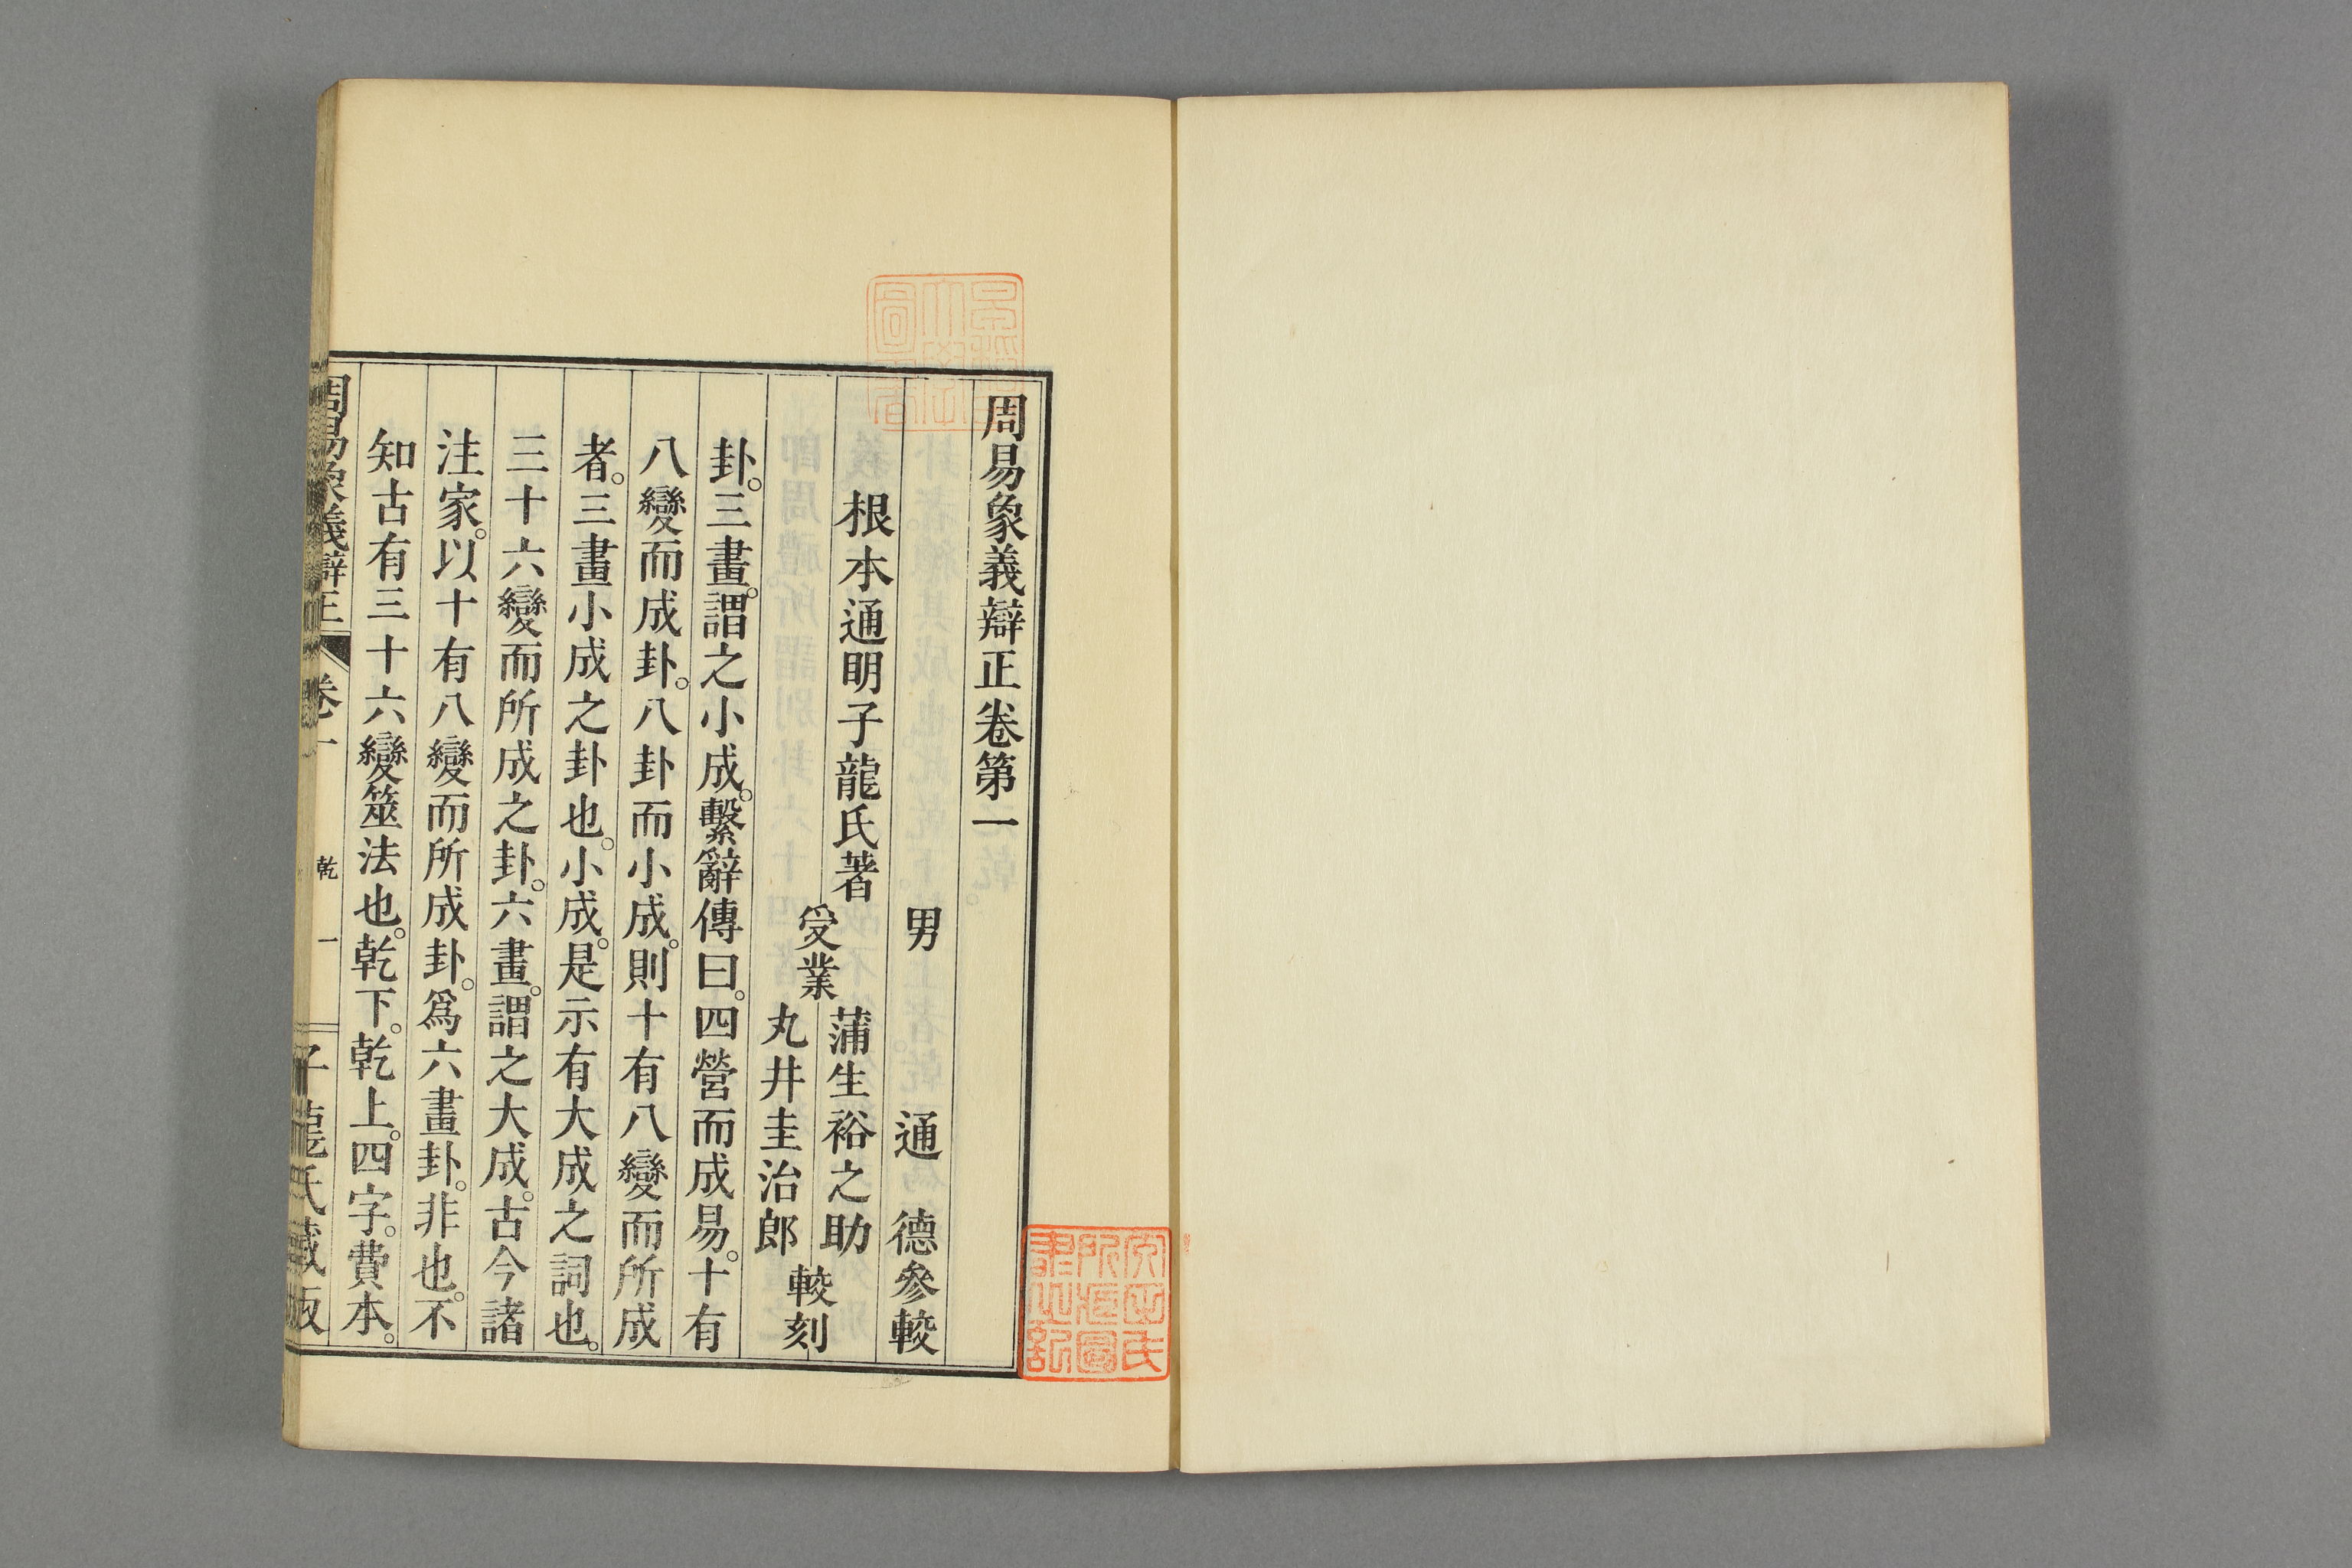 周易象義辯正卷第一
男　通　德參較
根本通明子龍氏著
受業
蒲生裕之助
丸井圭治郎
較刻
卦。三畫。謂之小成。繫辭傳曰。四營而成易。十有
八變而成卦。八卦而小成。則十有八變而所成
者。三畫小成之卦也。小成。是示有大成之詞也。
三十六變而所成之卦。六畫。謂之大成。古今諸
注家。以十有八變而所成卦。爲六畫卦。非也。不
知古有三十六變筮法也。乾下。乾上。四字。費本。
周易象義辯正　卷一　乾　一　子龍氏藏版